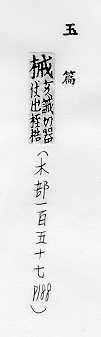 玉篇
械 亥誡切器仗也桎梏(木部一百五十七 P188)